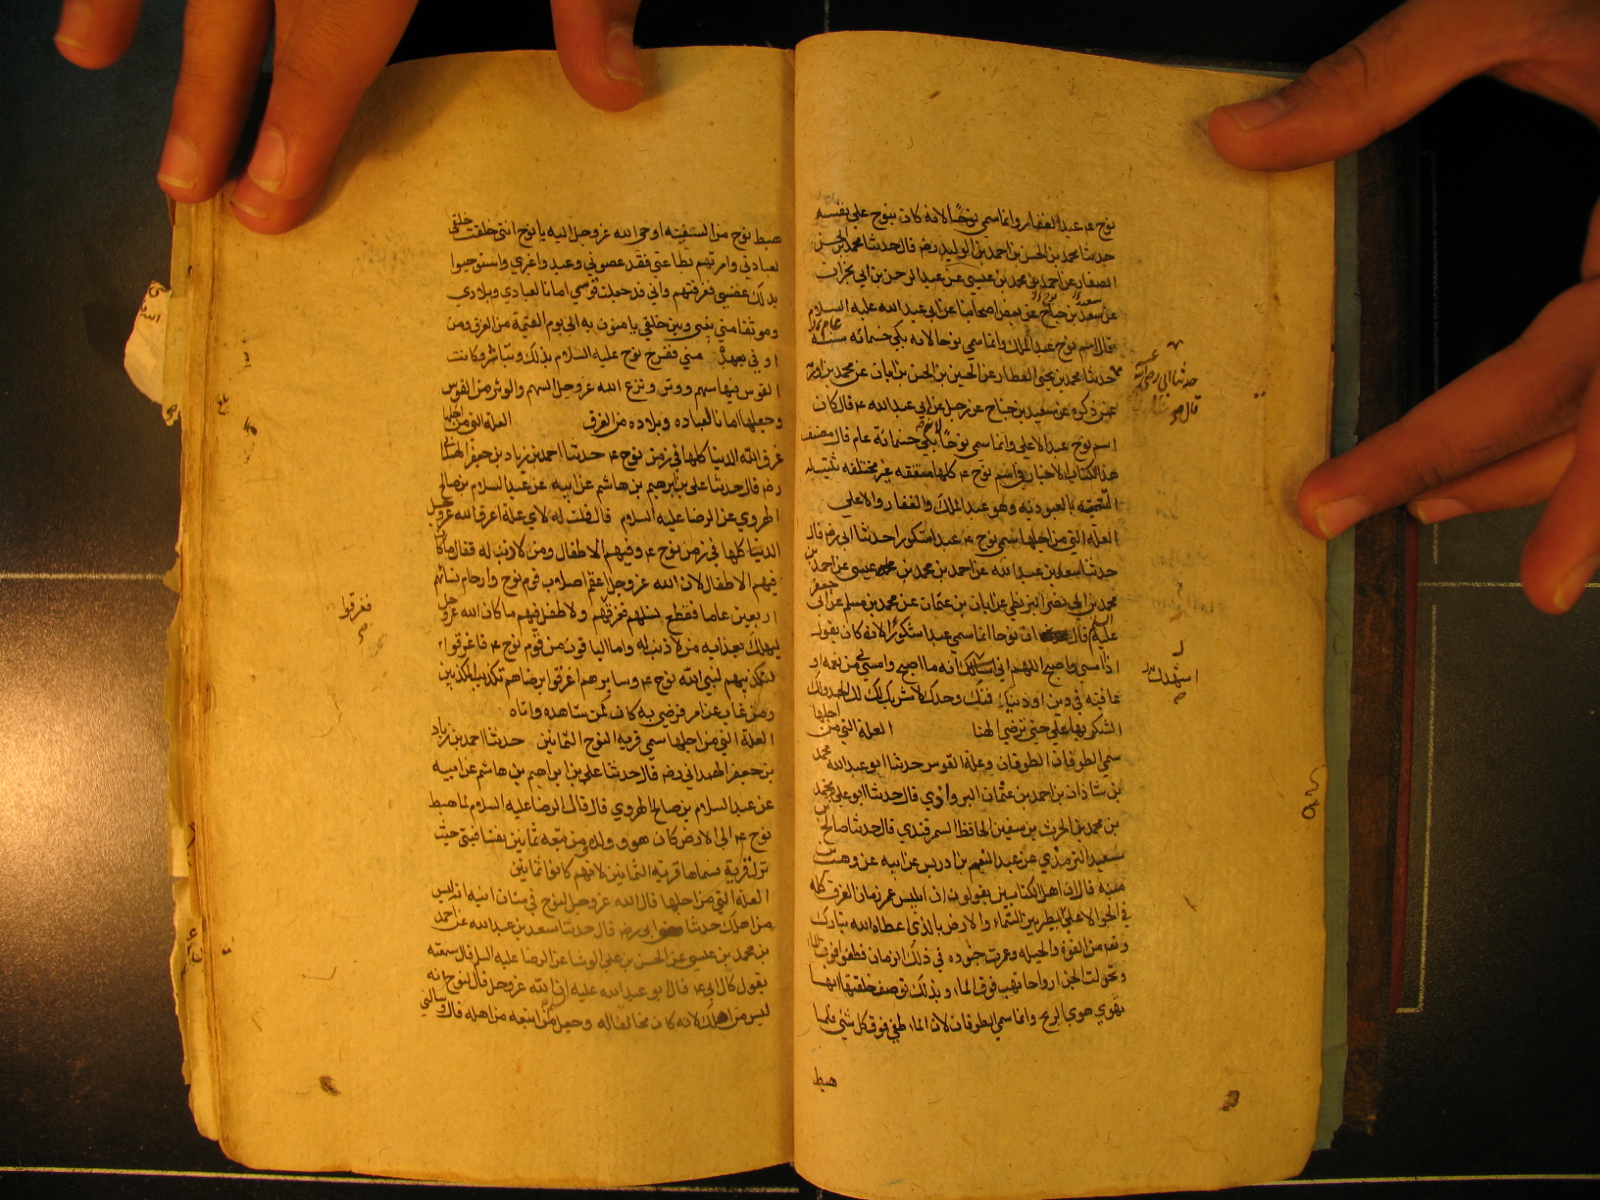 نوح ع عبد الغفار وانما سمي نوحا لانه كان ينوح علي نفسه
حدثنا محمد بن الحسن بن احمد بن الوليد رض قال حدثنا محمد بن الحسن
الصفار عن احمد بن محمد بن عيسي عن عبد الرحمن بن ابي نجران
عن سعيد بن جناح عن بعض اصحابنا عن ابي عبد الله عليه السلام
قال اسم نوح عبد الملك وانما سمي نوحا لانه بكي خمسمائه سنة
حدثنا محمد بن يحيي العطار عن الحسين بن الحسن بن ابان عن محمد بن اورمه
عمن ذكره عن سعيد بن جناح عن رجل عن ابي عبد الله ع قال كان
اسم نوح عبد الاعلي وانما سمي نوحا لانه بكي خمسمائة عام قال مصنف
هذا الكتاب الاخبار في اسم نوح ع كلها متفقه غير مختلفه تثبت له
التسميه بالعبوديه وهو عبد الملك والغفار والاعلي
العلة التي من اجلها سمي نوح ع عبدا شكورا حدثنا ابي رض قال
حدثنا سعد بن عبد الله عن احمد بن محمد بن عيسي عن احمد بن
محمد بن ابي نصر البزنطي عن ابان بن عثمان عن محمد بن مسلم عن ابي جعفر
عليه السلم قال ان نوحا انما سمي عبدا شكورا لانه كان يقول
اذا امسي واصبح اللهم اني انه ما اصبح وامسي بي من نعمة او
عافية في دين او دنيا فمنك وحدك لا شريك لك لك الحمد ولك
الشكر بها علي حتي ترضي الهنا العلة التي من اجلها
سمي الطوفان الطوفان وعلة القوس حدثنا ابو عبد الله محمد
بن شاذان بن احمد بن عثمان البروازي قال حدثنا ابو علي محمد
بن محمد بن الحرث بن سفين الحافظ السمرقندي قال حدثنا صالح بن
سعيد الترمذي عن عبد المنعم بن ادريس عن ابيه عن وهب بن
منبه قال ان اهل الكتابين يقولون ان ابليس عمر زمان الغرق كله
في الجو الاعلي يطير بين السماء والارض بالذي اعطاه الله تبارك
وتعه من القوة والحيله وعمرت جنوده في ذلك الزمان فطفوا فوق الماء
وتحولت الجن ارواحا تهب فوق الماء وبذلك توصف خلقتها انها
تهوي هوي الريح وانما سمي الطوفان لان الماء طفي فوق كل شي فلما
هبط
حدثنا ابي رحمه
قال
اشهدك
هبط نوح من السفينه اوحي الله عز وجل اليه يا نوح انني خلقت خلقي
لعبادتي وامرتهم بطاعتي فقد عصوني وعبدوا غيري واستوجبوا
بذلك غضبي فغرقتهم واني قد جعلت قوسي امانا لعبادي وبلادي
وموثقا مني بيني وبين خلقي يامنون به الي يوم القيمة من الغرق ومن
اوفي بعهده مني ففرح نوح عليه السلام بذلك وتباشر وكانت
القوس فيها سهم ووتر ونزع الله عز وجل السهم والوتر من القوس
وجعلها امانا لعباده وبلاده من الغرق العلة التي من اجلها
غرق الله الدنيا كلها في زمن نوح ع حدثنا احمد بن زياد بن جعفر الهمداني
رض قال حدثنا علي بن ابرهيم بن هاشم عن ابيه عن عبد السلام بن صالح
الهروي عن الرضا عليه السلام قال قلت له لاي علة اغرق الله عز وجل
الدنيا كلها في زمن نوح ع وفيهم الاطفال ومن لا ذنب له فقال ما كان
فيهم الاطفال لان الله عز وجل اعقم اصلاب قوم نوح وارحام نسائهم
اربعين عاما فنقطع نسلهم فغرقهم ولا طفل فيهم ما كان الله عز وجل
ليهلك بعذابه من لا ذنب له واما الباقون من قوم نوح ع فاغرقوا
لتكذيبهم لنبي الله نوح ع وسايرهم اغرقوا برضاهم تكذيب المكذبين
ومن غاب عن امر فرضي به كان كمن شاهده واتاه
العلة التي من اجلها سمي قرية النوح الثمانين حدثنا احمد بن زياد
بن جعفر الهمداني رض قال حدثنا علي بن ابراهيم بن هاشم عن ابيه
عن عبد السلام بن صالح الهروي قال قال الرضا عليه السلام لما هبط
نوح ع الي الارض كان هو وولده ومن تبعه ثمانين نفسا فبني حيث
نزل قرية فسماها قرية الثمانين لانهم كانوا ثمانين
العلة التي من اجلها قال الله عز وجل لنوح في شان ابنه انه ليس
من اهلك حدثنا ابي رض قال حدثنا سعد بن عبد الله عن احمد
بن محمد بن عيسي عن الحسن بن علي الوشا عن الرضا عليه السلم قال سمعته
يقول قال ابي ع قال ابو عبد الله عليه ان الله عز وجل قال لنوح انه
ليس من اهلك لانه كان مخالفا له وجعل من اتبعه من اهله قال وسالني
فغرقوا